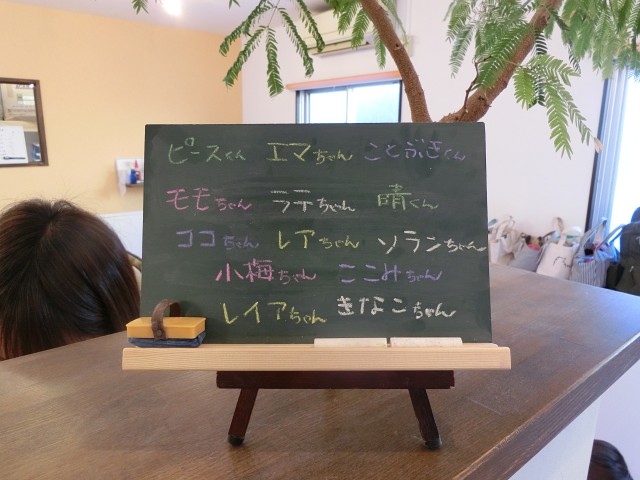 ピースくん エマちゃん ことぶきくん
モモちゃん ラテちゃん 晴くん
ココちゃん レアちゃん ソランちゃん
小梅ちゃん ここみちゃん
レイアちゃん きなこちゃん